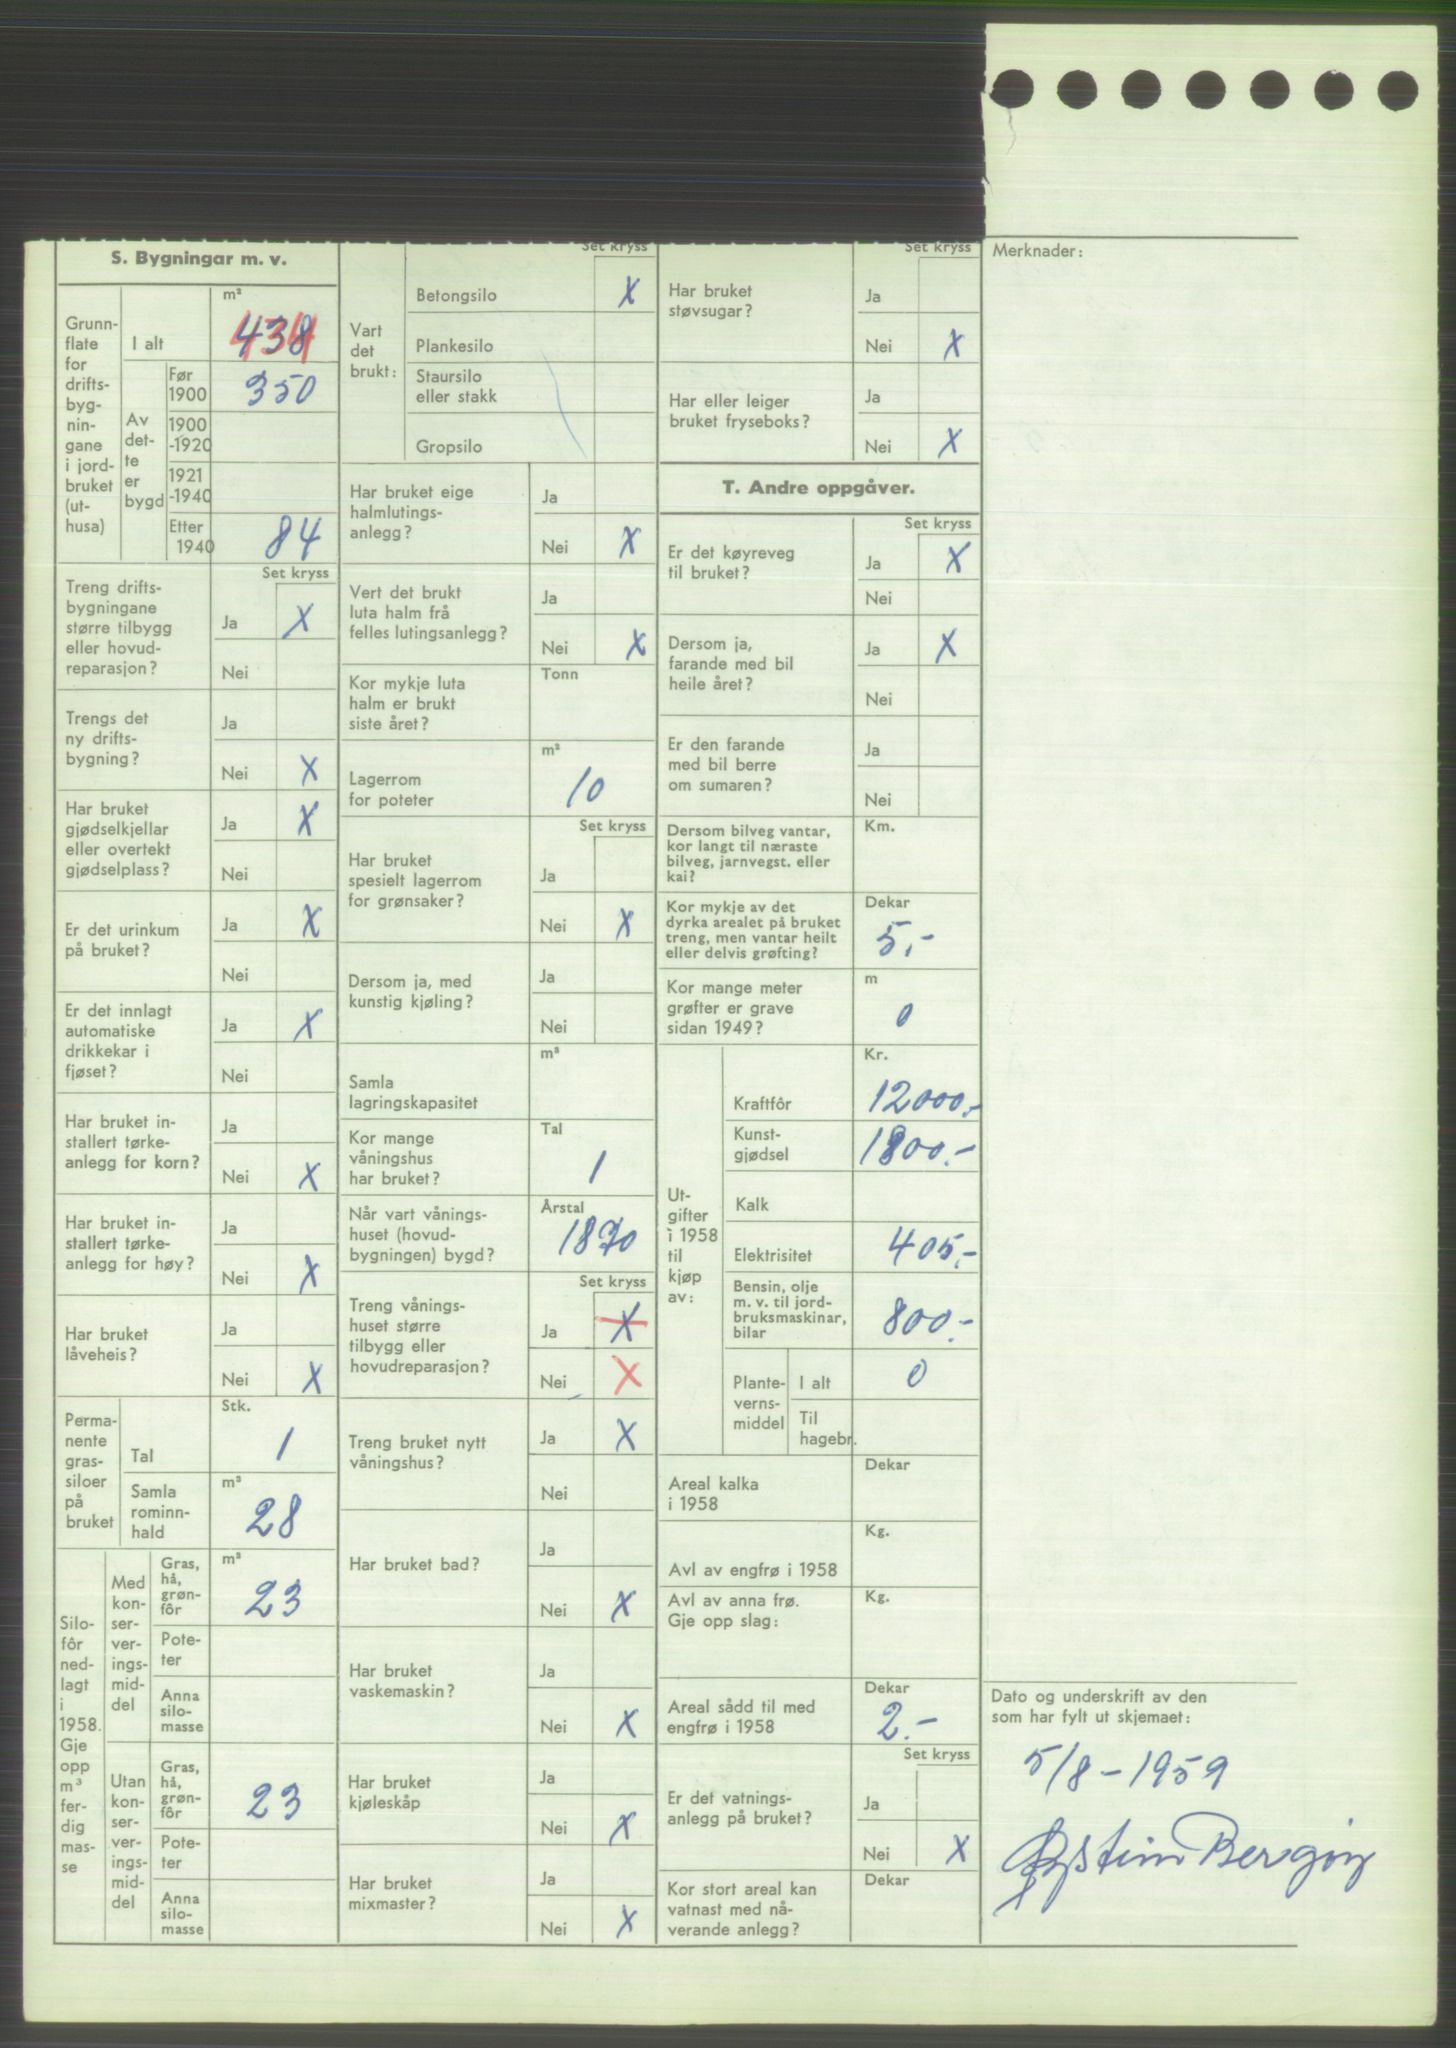 S. Bygningar m. v.
Grunn-
flate
for
drifts-
byg-
nin-
gane
i jord-
bruket
(ut-
husa)
I alt
m²
434
Av
det-
te
er
bygd
Før
1900
350
1900
-1920
1921
-1940
Etter
1940
84
Set kryss
Treng drifts-
bygningane
større tilbygg
eller hovud-
reparasjon?
Ja X
Nei
Trengs det
ny drifts-
bygning?
Ja
Nei X
Har bruket
gjødselkjellar
eller overtekt
gjødselplass?
Ja X
Nei
Er det urinkum
på bruket?
Ja X
Nei
Er det innlagt
automatiske
drikkekar i
fjøset?
Ja X
Nei
Har bruket in-
stallert tørke-
anlegg for korn?
Ja
Nei X
Har bruket in-
stallert tørke-
anlegg for høy?
Ja
Nei X
Har bruket
låveheis?
Ja
Nei X
Perma-
nente
gras-
siloer
på
bruket
Stk.
Tal 1
Samla
rominn-
hald
m³
28
Silo-
fôr
ned-
lagt
i
1958.
Gje
opp
m³
fer-
dig
mas-
se
Med
kon-
ser-
ver-
ings-
mid-
del
Gras,
hå,
grøn-
fôr
m³
23
Pote-
ter
Anna
silo-
masse
Utan
kon-
ser-
ver-
ings-
mid-
del
Gras,
hå,
grøn-
fôr
23
Pote-
ter
Anna
silo-
masse
Set kryss
Vart
det
brukt:
Betongsilo X
Plankesilo
Staursilo
eller stakk
Gropsilo
Har bruket eige
halmlutings-
anlegg?
Ja
Nei X
Vert det brukt
luta halm frå
felles lutingsanlegg?
Ja
Nei X
Kor mykje luta
halm er brukt
siste året?
Tonn
Lagerrom
for poteter
m³
10
Set kryss
Har bruket
spesielt lagerrom
for grønsaker?
Ja
Nei X
Dersom ja, med
kunstig kjøling?
Ja
Nei
Samla
lagringskapasitet
m³
Kor mange
våningshus
har bruket?
Tal
1
Når vart vånings-
huset (hovud-
bygningen) bygd?
Årstal
1870
Set kryss
Treng vånings-
huset større
tilbygg eller
hovudreparasjon?
Ja X
Nei X
Treng bruket nytt
våningshus?
Ja X
Nei
Har bruket bad?
Ja
Nei X
Har bruket
vaskemaskin?
Ja
Nei X
Har bruket
kjøleskåp
Ja
Nei X
Har bruket
mixmaster?
Ja
Nei X
Set kryss
Har bruket
støvsugar?
Ja
Nei X
Har eller leiger
bruket fryseboks?
Ja
Nei X
T. Andre oppgåver.
Set kryss
Er det køyreveg
til bruket?
Ja X
Nei
Dersom ja,
farande med bil
heile året?
Ja X
Nei
Er den farande
med bil berre
om sumaren?
Ja
Nei
Dersom bilveg vantar,
kor langt til næraste
bilveg, jarnvegst. eller
kai?
Km.
Kor mykje av det
dyrka arealet på bruket
treng, men vantar heilt
eller delvis grøfting?
Dekar
5,-
Kor mange meter
grøfter er grave
sidan 1949?
m
0
Ut-
gifter
i 1958
til
kjøp
av:
Kr.
Kraftfôr 12000.-
Kunst-
gjødsel 1800.-
Kalk
Elektrisitet 405.-
Bensin, olje
m. v. til jord-
bruksmaskinar,
bilar
800.-
Plante-
verns-
middel
I alt 0
Til
hagebr.
Areal kalka
i 1958
Dekar
Avl av engfrø i 1958
Kg.
Avl av anna frø.
Gje opp slag:
Kg.
Areal sådd til med
engfrø i 1958
Dekar
2.-
Set kryss
Er det vatnings-
anlegg på bruket?
Ja
Nei X
Kor stort areal kan
vatnast med nå-
verande anlegg?
Dekar
Merknader:
Dato og underskrift av den
som har fylt ut skjemaet:
5/8-1959
Øystein Bergöy